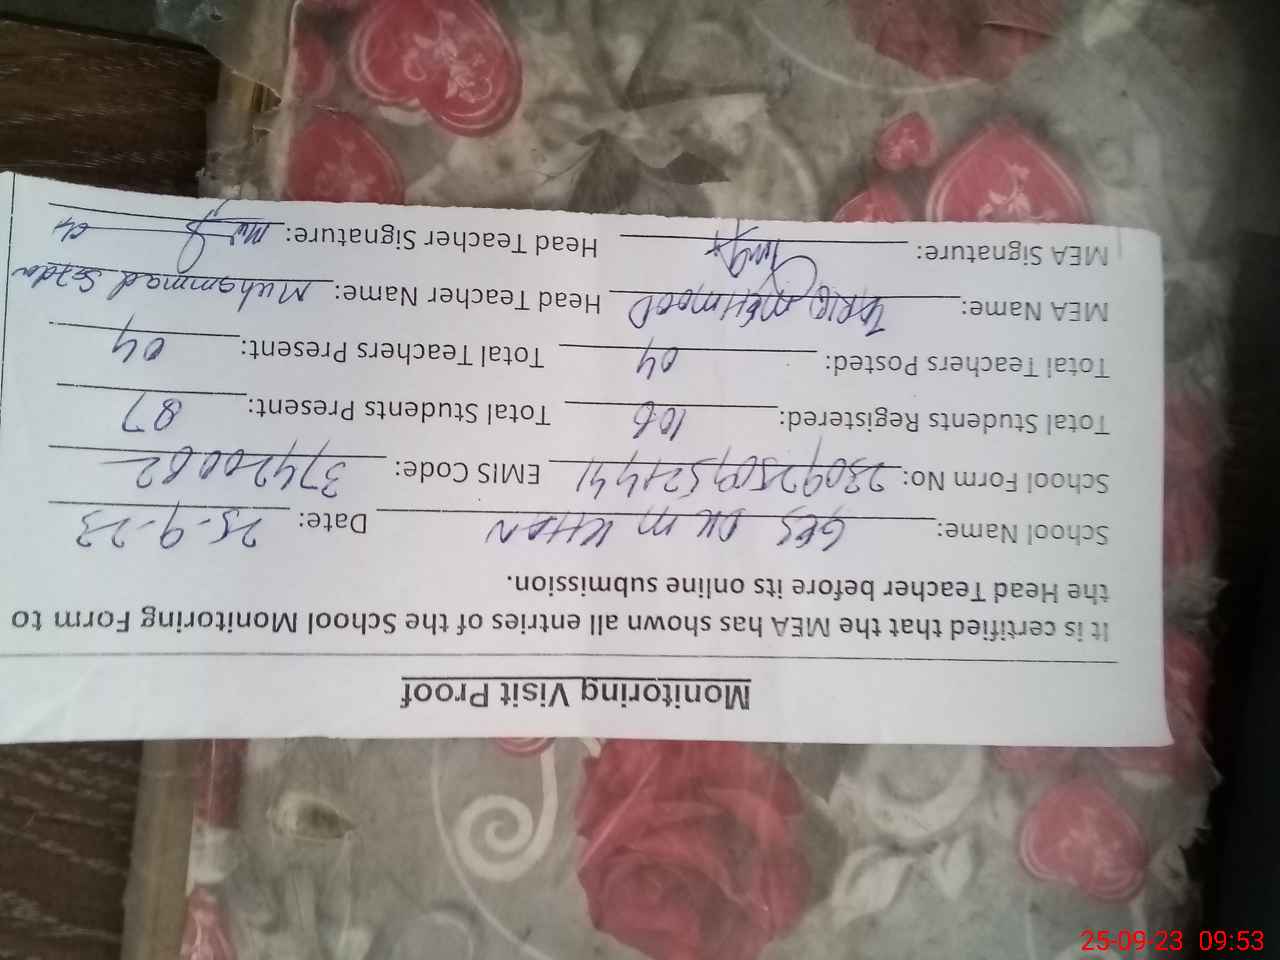 Monitoring Visit Proof
It is certified that the MEA has shown all entries of the School Monitoring Form to
the Head Teacher before its online submission.
School Name: GES DK M KHAN Date: 25-9-23
School Form No: EMIS Code: 37420082
Total Students Registered: 106 Total Students Present: 87
Total Teachers Posted: 04 Total Teachers Present: 04
MEA Name: TARIQ MEHMOOD Head Teacher Name: Muhammad
MEA Signature: Head Teacher Signature:
25-09-23 09:53